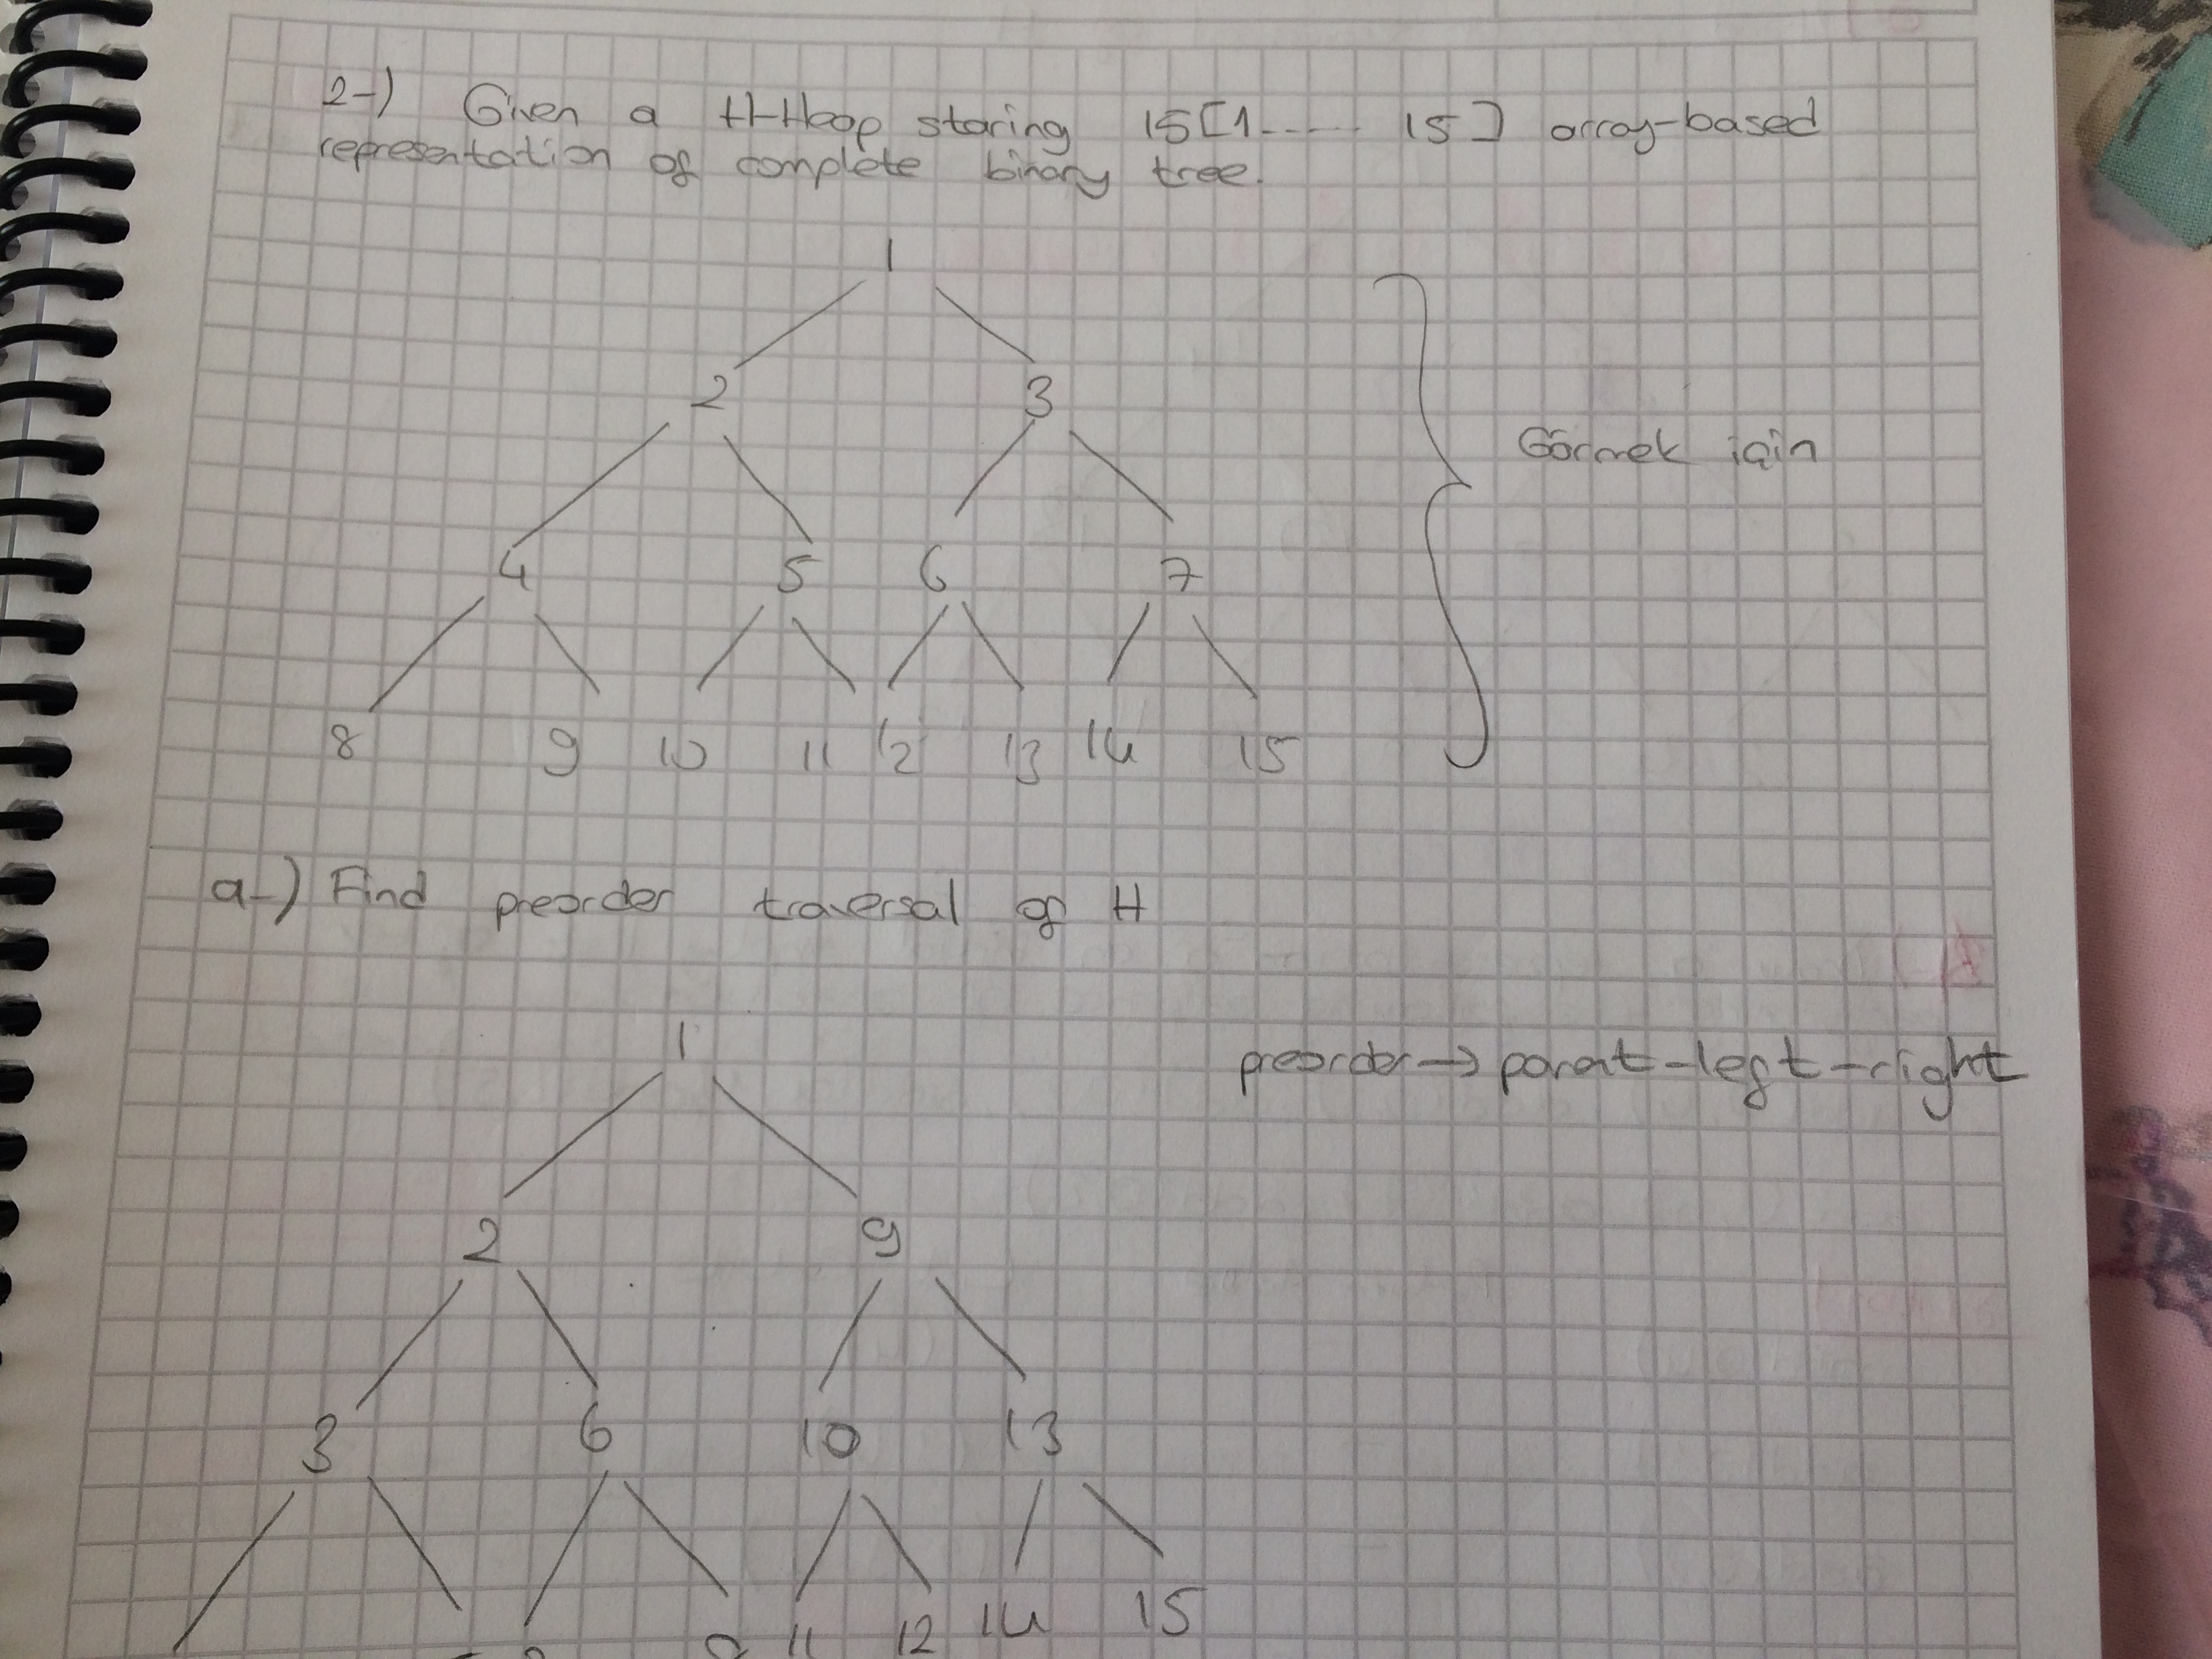 2-) Given a H-Heap storing 15[1------ 15] array-based
representation of complete binary tree.
1
2 3
4 5 6 7
8 9 10 11 12 13 14 15
Görmek için
a-) Find preorder traversal of H
preorder → parent-left-right
1
2 9
3 6 10 13
11 12 14 15